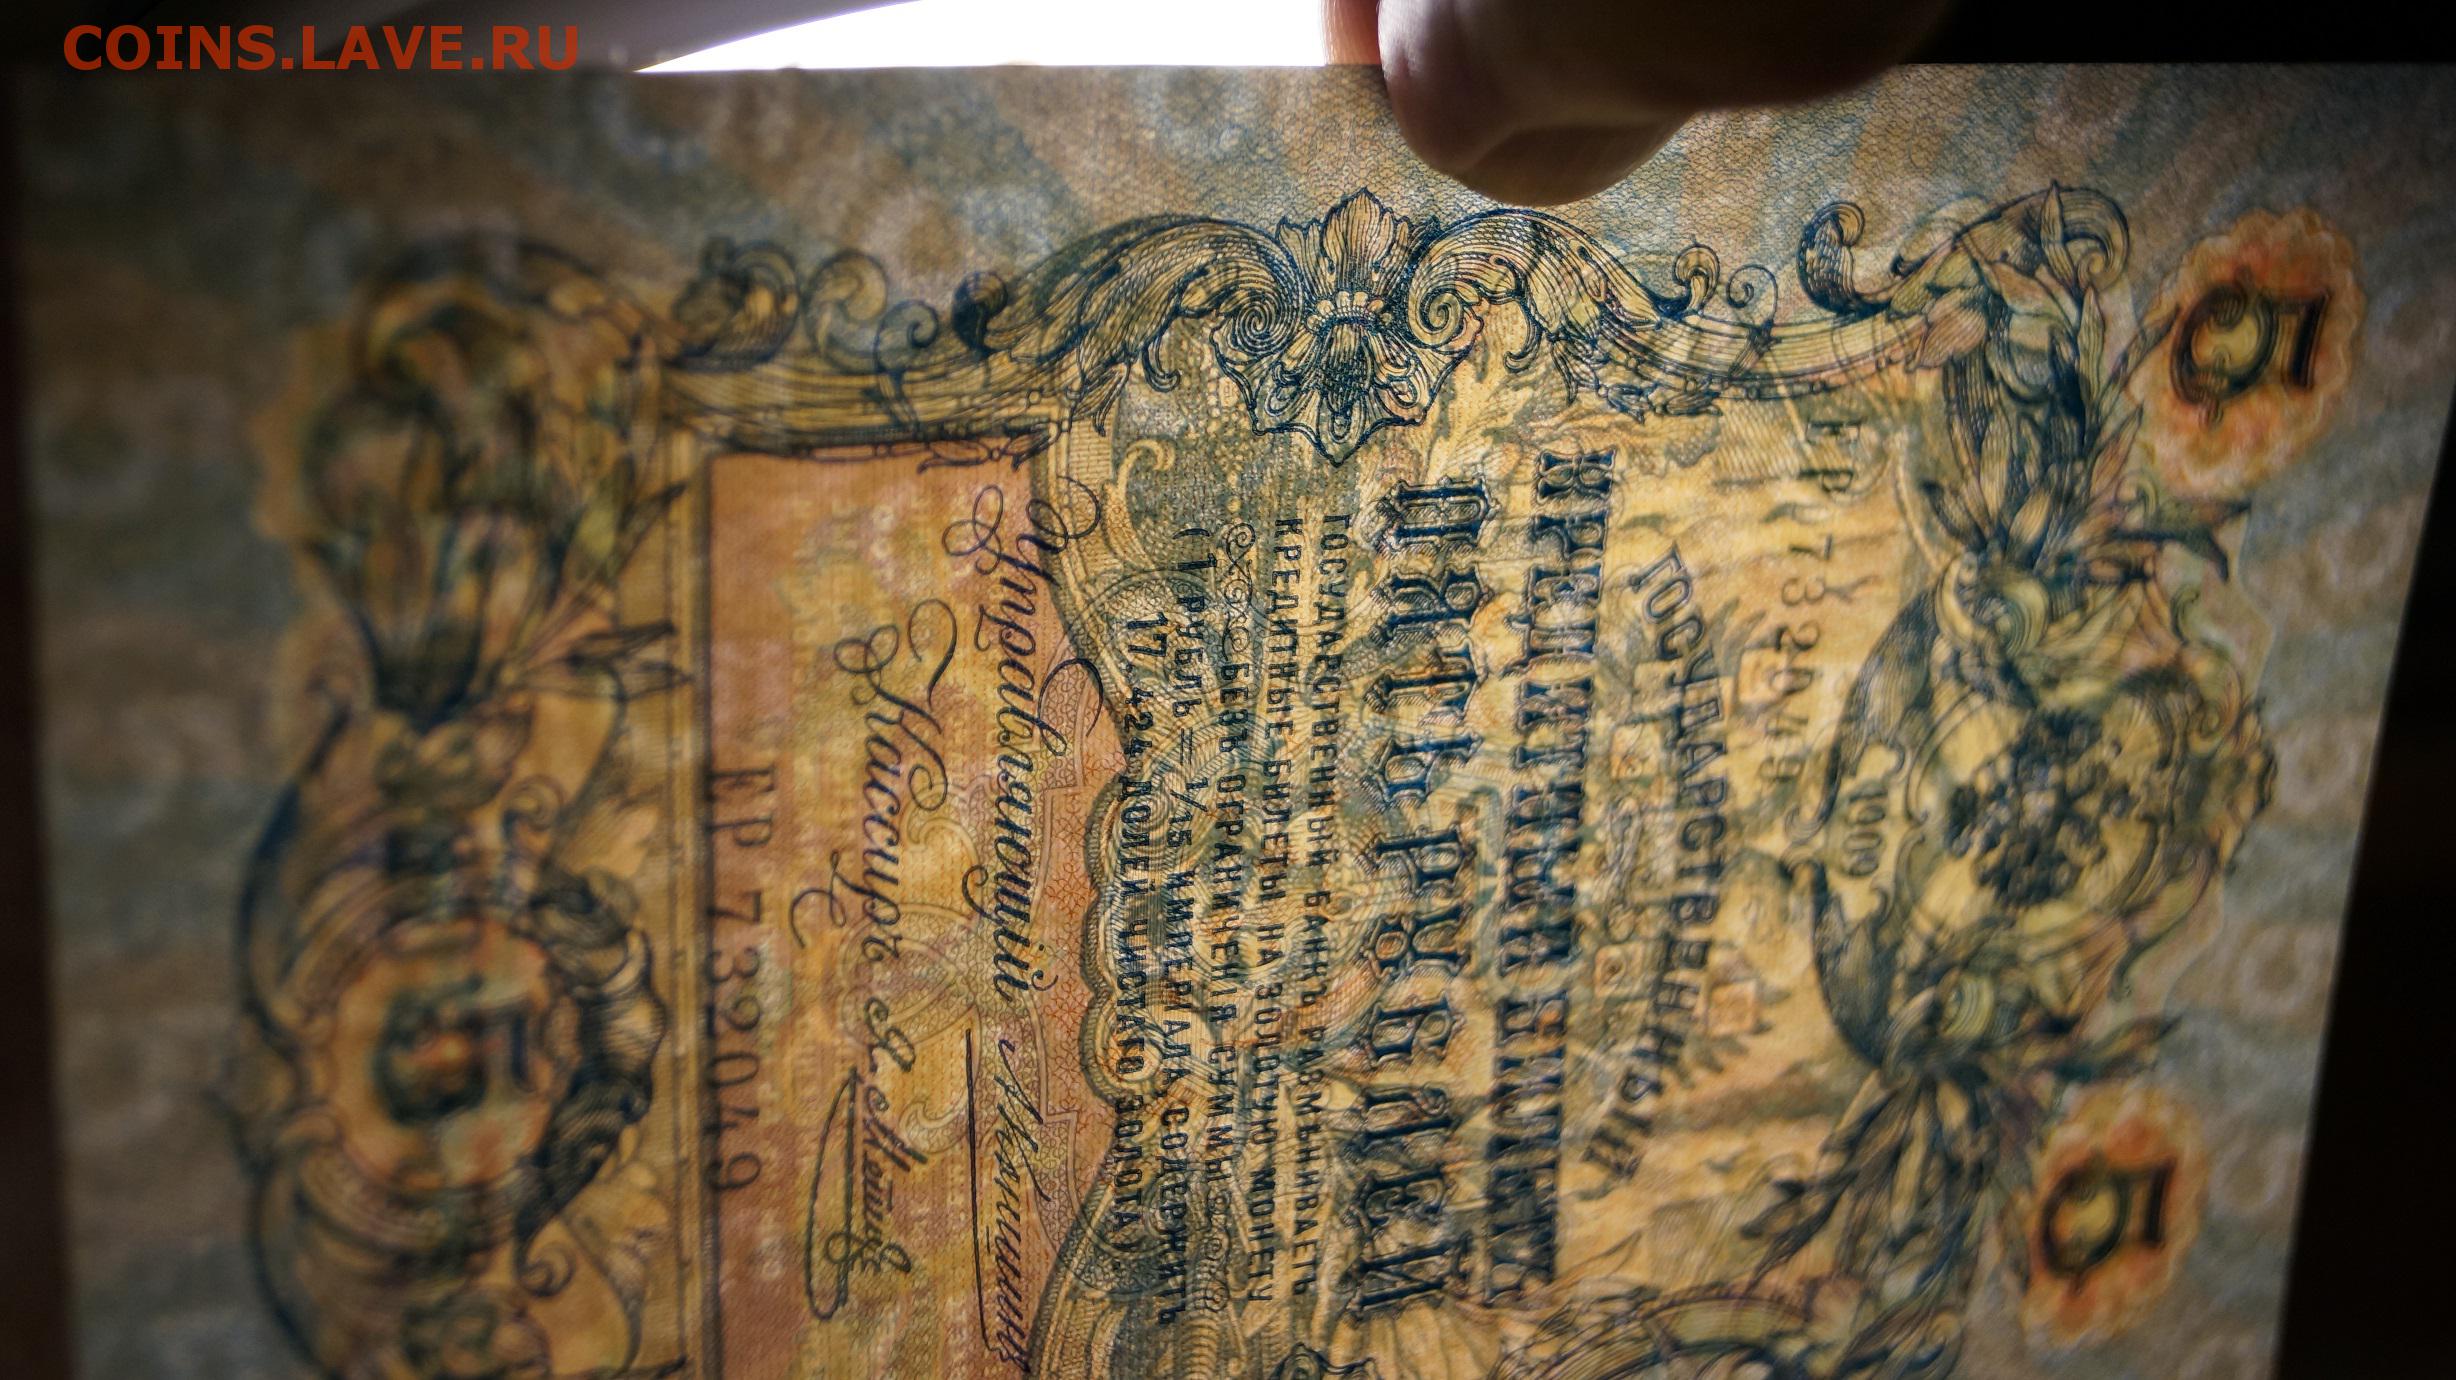 COINS.LAVE.RU
5
5
1909
ЕР 732049
ГОСУДАРСТВЕННЫЙ
КРЕДИТНЫЙ БИЛЕТЪ
ПЯТЬ РУБЛЕЙ
ГОСУДАРСТВЕННЫЙ БАНКЪ РАЗМѢНИВАЕТЪ
КРЕДИТНЫЕ БИЛЕТЫ НА ЗОЛОТУЮ МОНЕТУ
БЕЗЪ ОГРАНИЧЕНІЯ СУММЫ
(1 РУБЛЬ = 1/15 ИМПЕРІАЛА, СОДЕРЖИТЪ
17,424 ДОЛЕЙ ЧИСТАГО ЗОЛОТА).
Управляющій И Шипов
Кассиръ Я. Метц
ЕР 732049
5